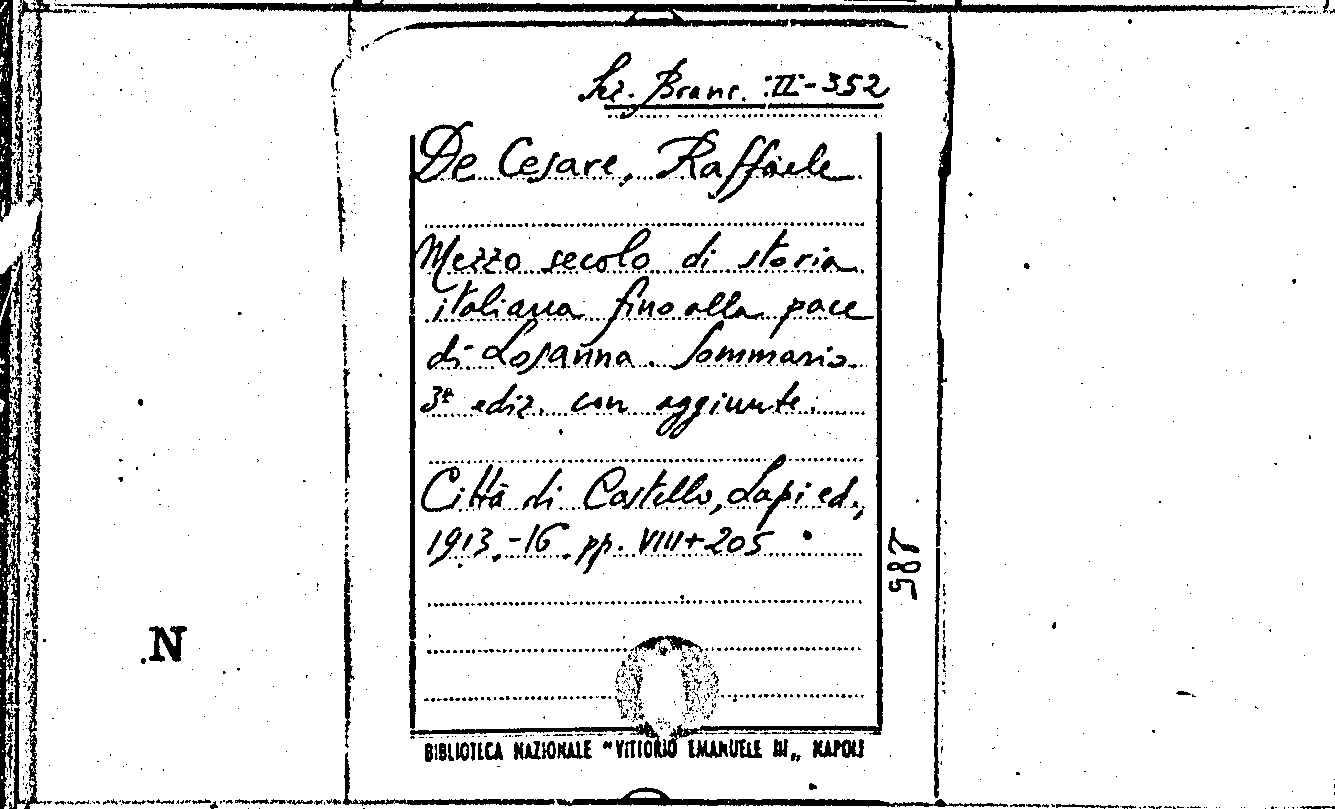 Sez. Branc. II-352
De Cesare, Raffaele
Mezzo secolo di storia
italiana fino alla pace
di Losanna. Sommario.
3ª ediz. con aggiunte.
Città di Castello, Lapi ed.,
1913.-16. pp. VIII+205
587
N
BIBLIOTECA NAZIONALE "VITTORIO EMANUELE III„ NAPOLI